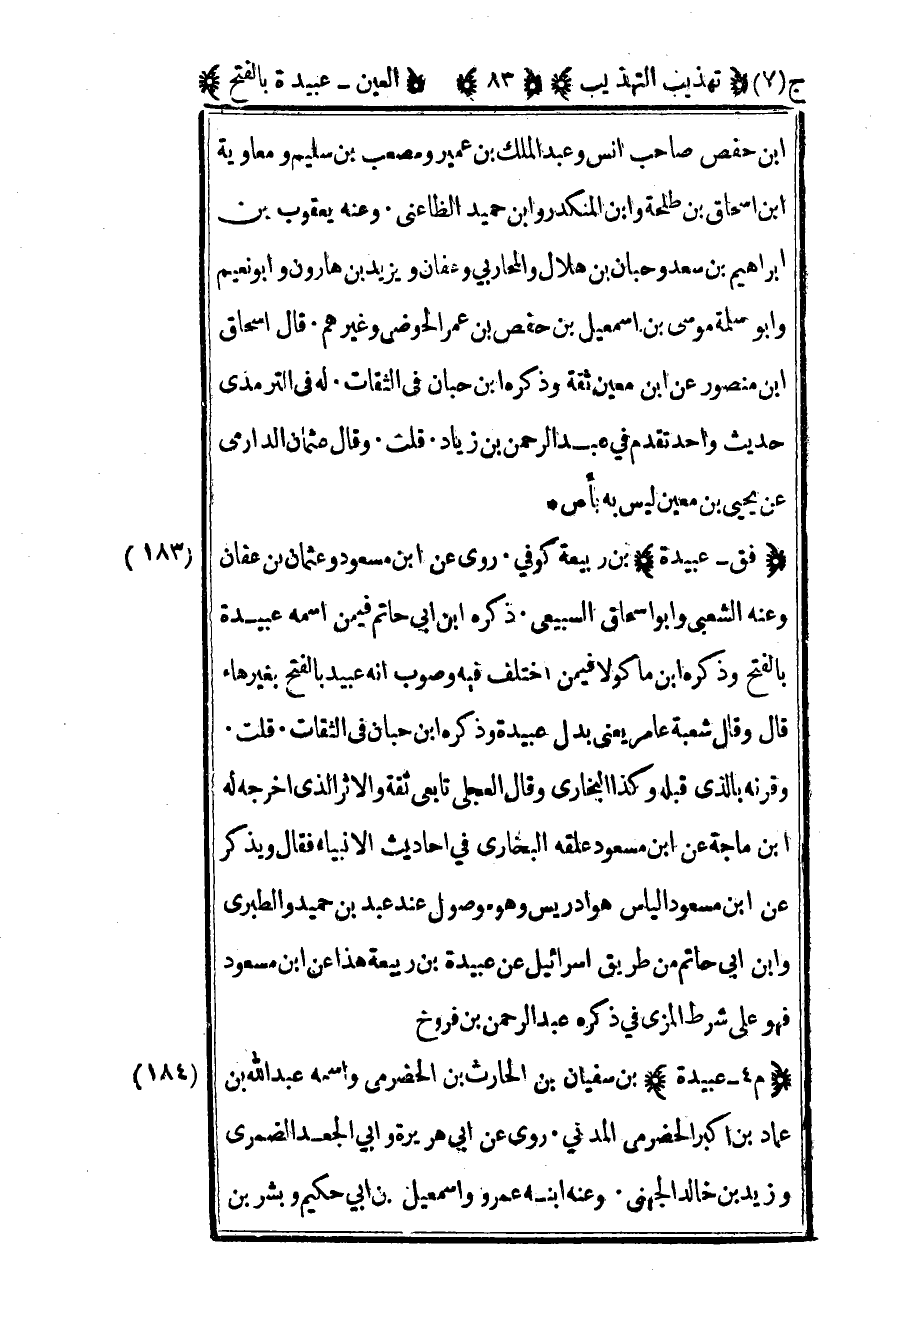 ج(٧) ﴿ تهذيب التهذيب ﴾ ﴿ ٨٣ ﴾ ﴿ العين ـ عبيدة بالفتح ﴾
ابن حفص صاحب انس وعبد الملك بن عمير ومصعب بن سليم و معاوية
ابن اسحاق بن طلحة وابن المنكدر وابن حميد الظاعنى ٠ وعنه يعقوب بن
ابراهيم بن سعد وحبان بن هلال والمحاربي وعفان و يزيد بن هارون و ابو نعيم
وابو سلمة موسى بن اسمعيل بن حفص بن عمر الحوضي وغيرهم ٠ قال اسحاق
ابن منصور عن ابن معين ثقة وذكره ابن حبان فى الثقات ٠ له فى الترمذى
حديث واحد تقدم في عبد الرحمن بن زياد ٠ قلت ٠ وقال عثمان الدارمى
عن يحيى بن معين ليس به بأس ٠
﴿ فق ـ عبيدة ﴾ بن ربيعة كوفي ٠ روى عن ابن مسعود وعثمان بن عفان (١٨٣)
وعنه الشعبى وابو اسحاق السبيعى ٠ ذكره ابن ابي حاتم فيمن اسمه عبيدة
بالفتح وذكره ابن ماكولا فيمن اختلف فيه وصوب انه عبيد بالفتح بغير هاء
قال وقال شعبة عامر يعنى بدل عبيدة وذكره ابن حبان فى الثقات ٠ قلت ٠
وقرنه بالذى قبله وكذا البخارى وقال العجلى تابعى ثقة والاثر الذى اخرجه له
ابن ماجة عن ابن مسعود علقه البخارى في احاديث الانبياء فقال ويذكر
عن ابن مسعود الياس هو ادريس وهو موصول عند عبد بن حميد والطبرى
وابن ابي حاتم من طريق اسرائيل عن عبيدة بن ربيعة هذا عن ابن مسعود
فهو على شرط المزى في ذكره عبد الرحمن بن فروخ
﴿ م٤ ـ عبيدة ﴾ بن سفيان بن الحارث بن الحضرمى واسمه عبد الله بن (١٨٤)
عماد بن اكبر الحضرمى المدني ٠ روى عن ابي هريرة و ابي الجعد الضمرى
و زيد بن خالد الجهنى ٠ وعنه ابنه عمرو واسمعيل بن ابي حكيم و بشر بن